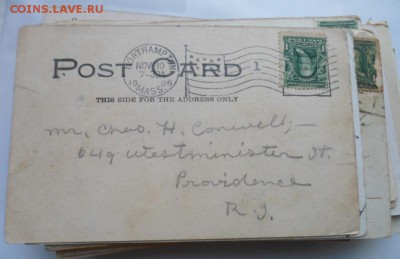 COINS.LAVE.RU
NORTHAMPTON
NOV 30
7-PM
1906
MASS.
1
POST CARD
THIS SIDE FOR THE ADDRESS ONLY
Mr. Chas. H. Conwell,-
649 Westminister St.
Providence
R.I.